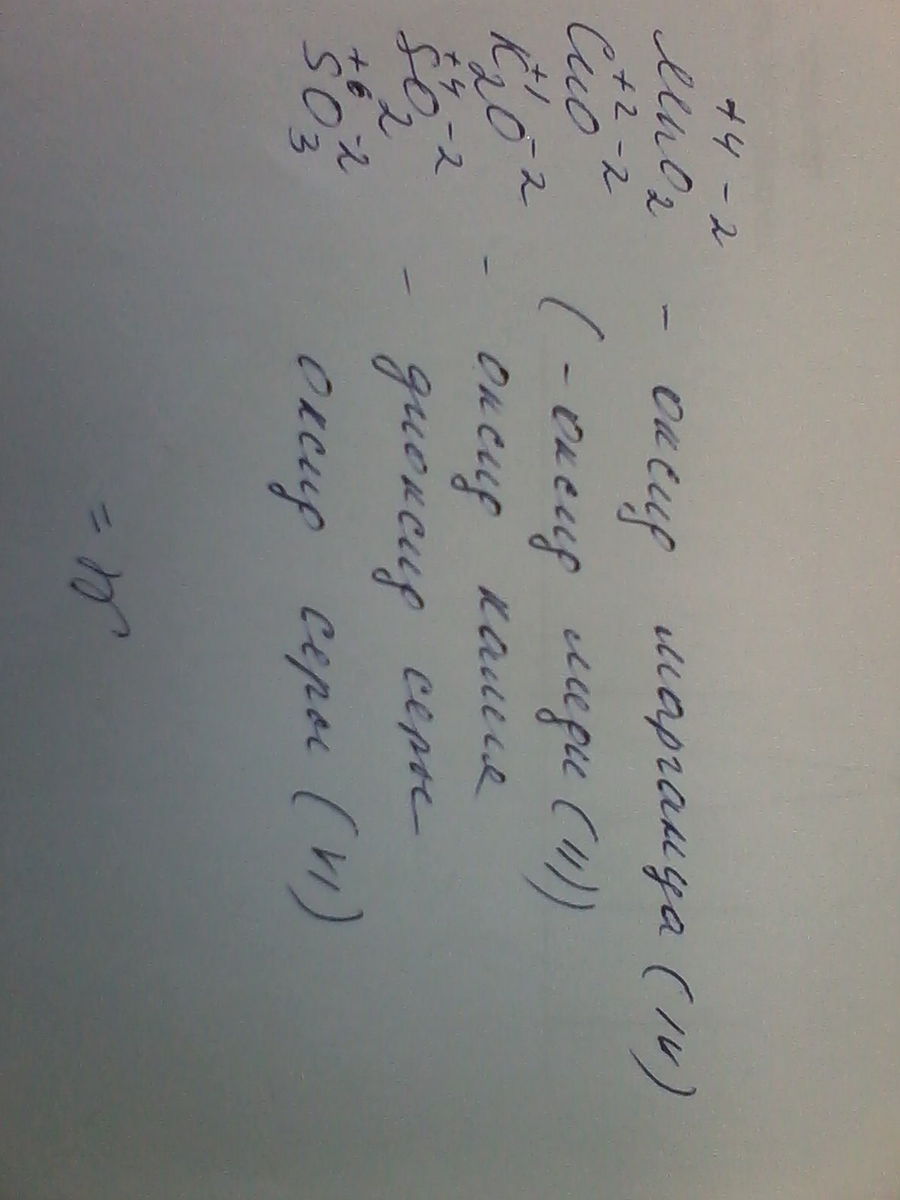 +4 -2
MnO2 - оксид марганца (IV)
+2 -2
CuO (- оксид меди (II)
+1 -2
K2O - оксид калия
+4 -2
SO2 - диоксид серы
+6 -2
SO3 оксид серы (VI)